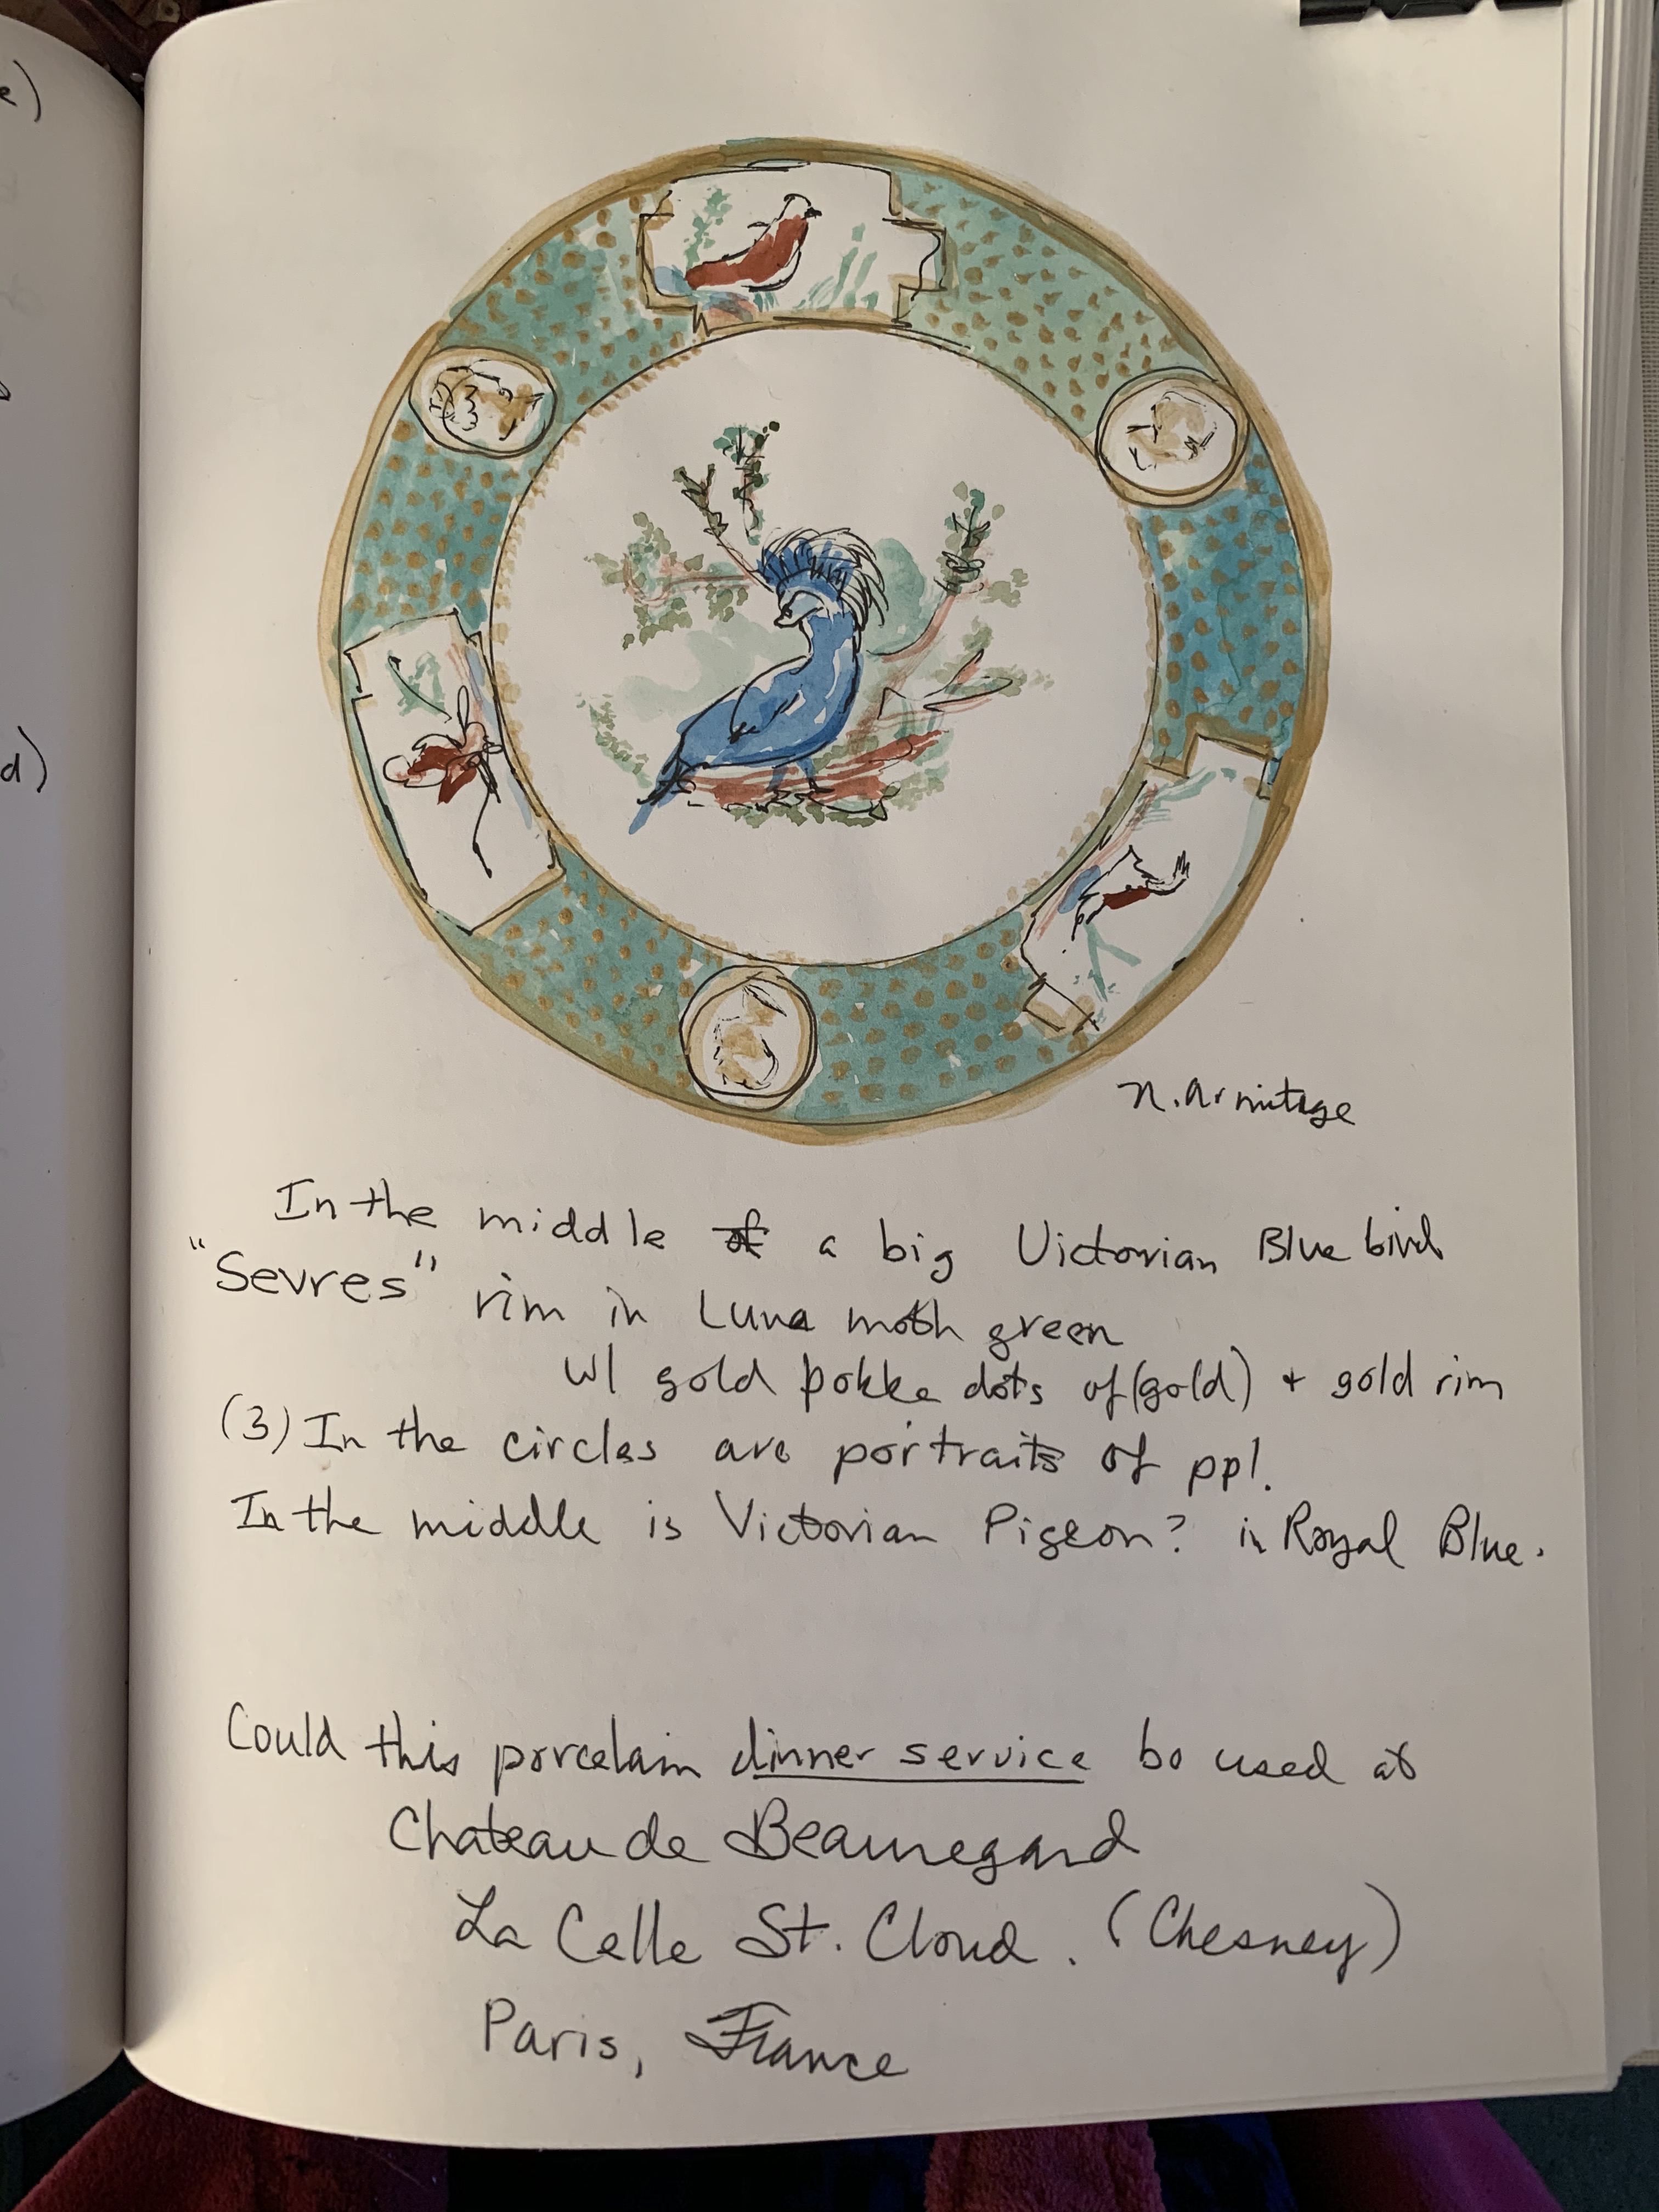 e)
d)
N. Armitage
In the middle of a big Victorian Blue bird
"Sevres" rim in Luna moth green
w/ gold pokka dots of (gold) + gold rim
(3) In the circles are portraits of ppl.
In the middle is Victorian Pigeon? in Royal Blue.
Could this porcelain dinner service be used at
Chateau de Beauregard
La Celle St. Cloud. (Chesney)
Paris, France